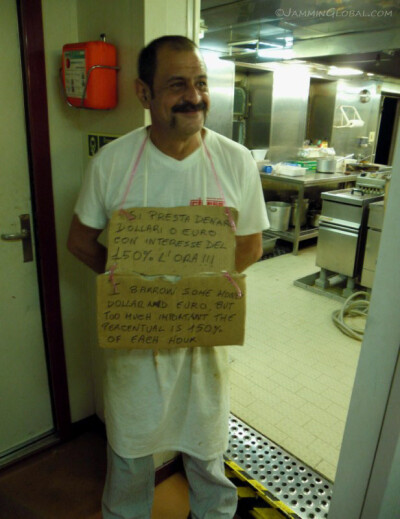 ©JAMMINGLOBAL.COM
SI PRESTA DENARO
DOLLARI O EURO
CON INTERESSE DEL
150% L'ORA!!!
I BARROW SOME MONEY
DOLLAR AND EURO, BUT
TOO MUCH IMPORTANT THE
PERCENTUAL IS 150%
OF EACH HOUR